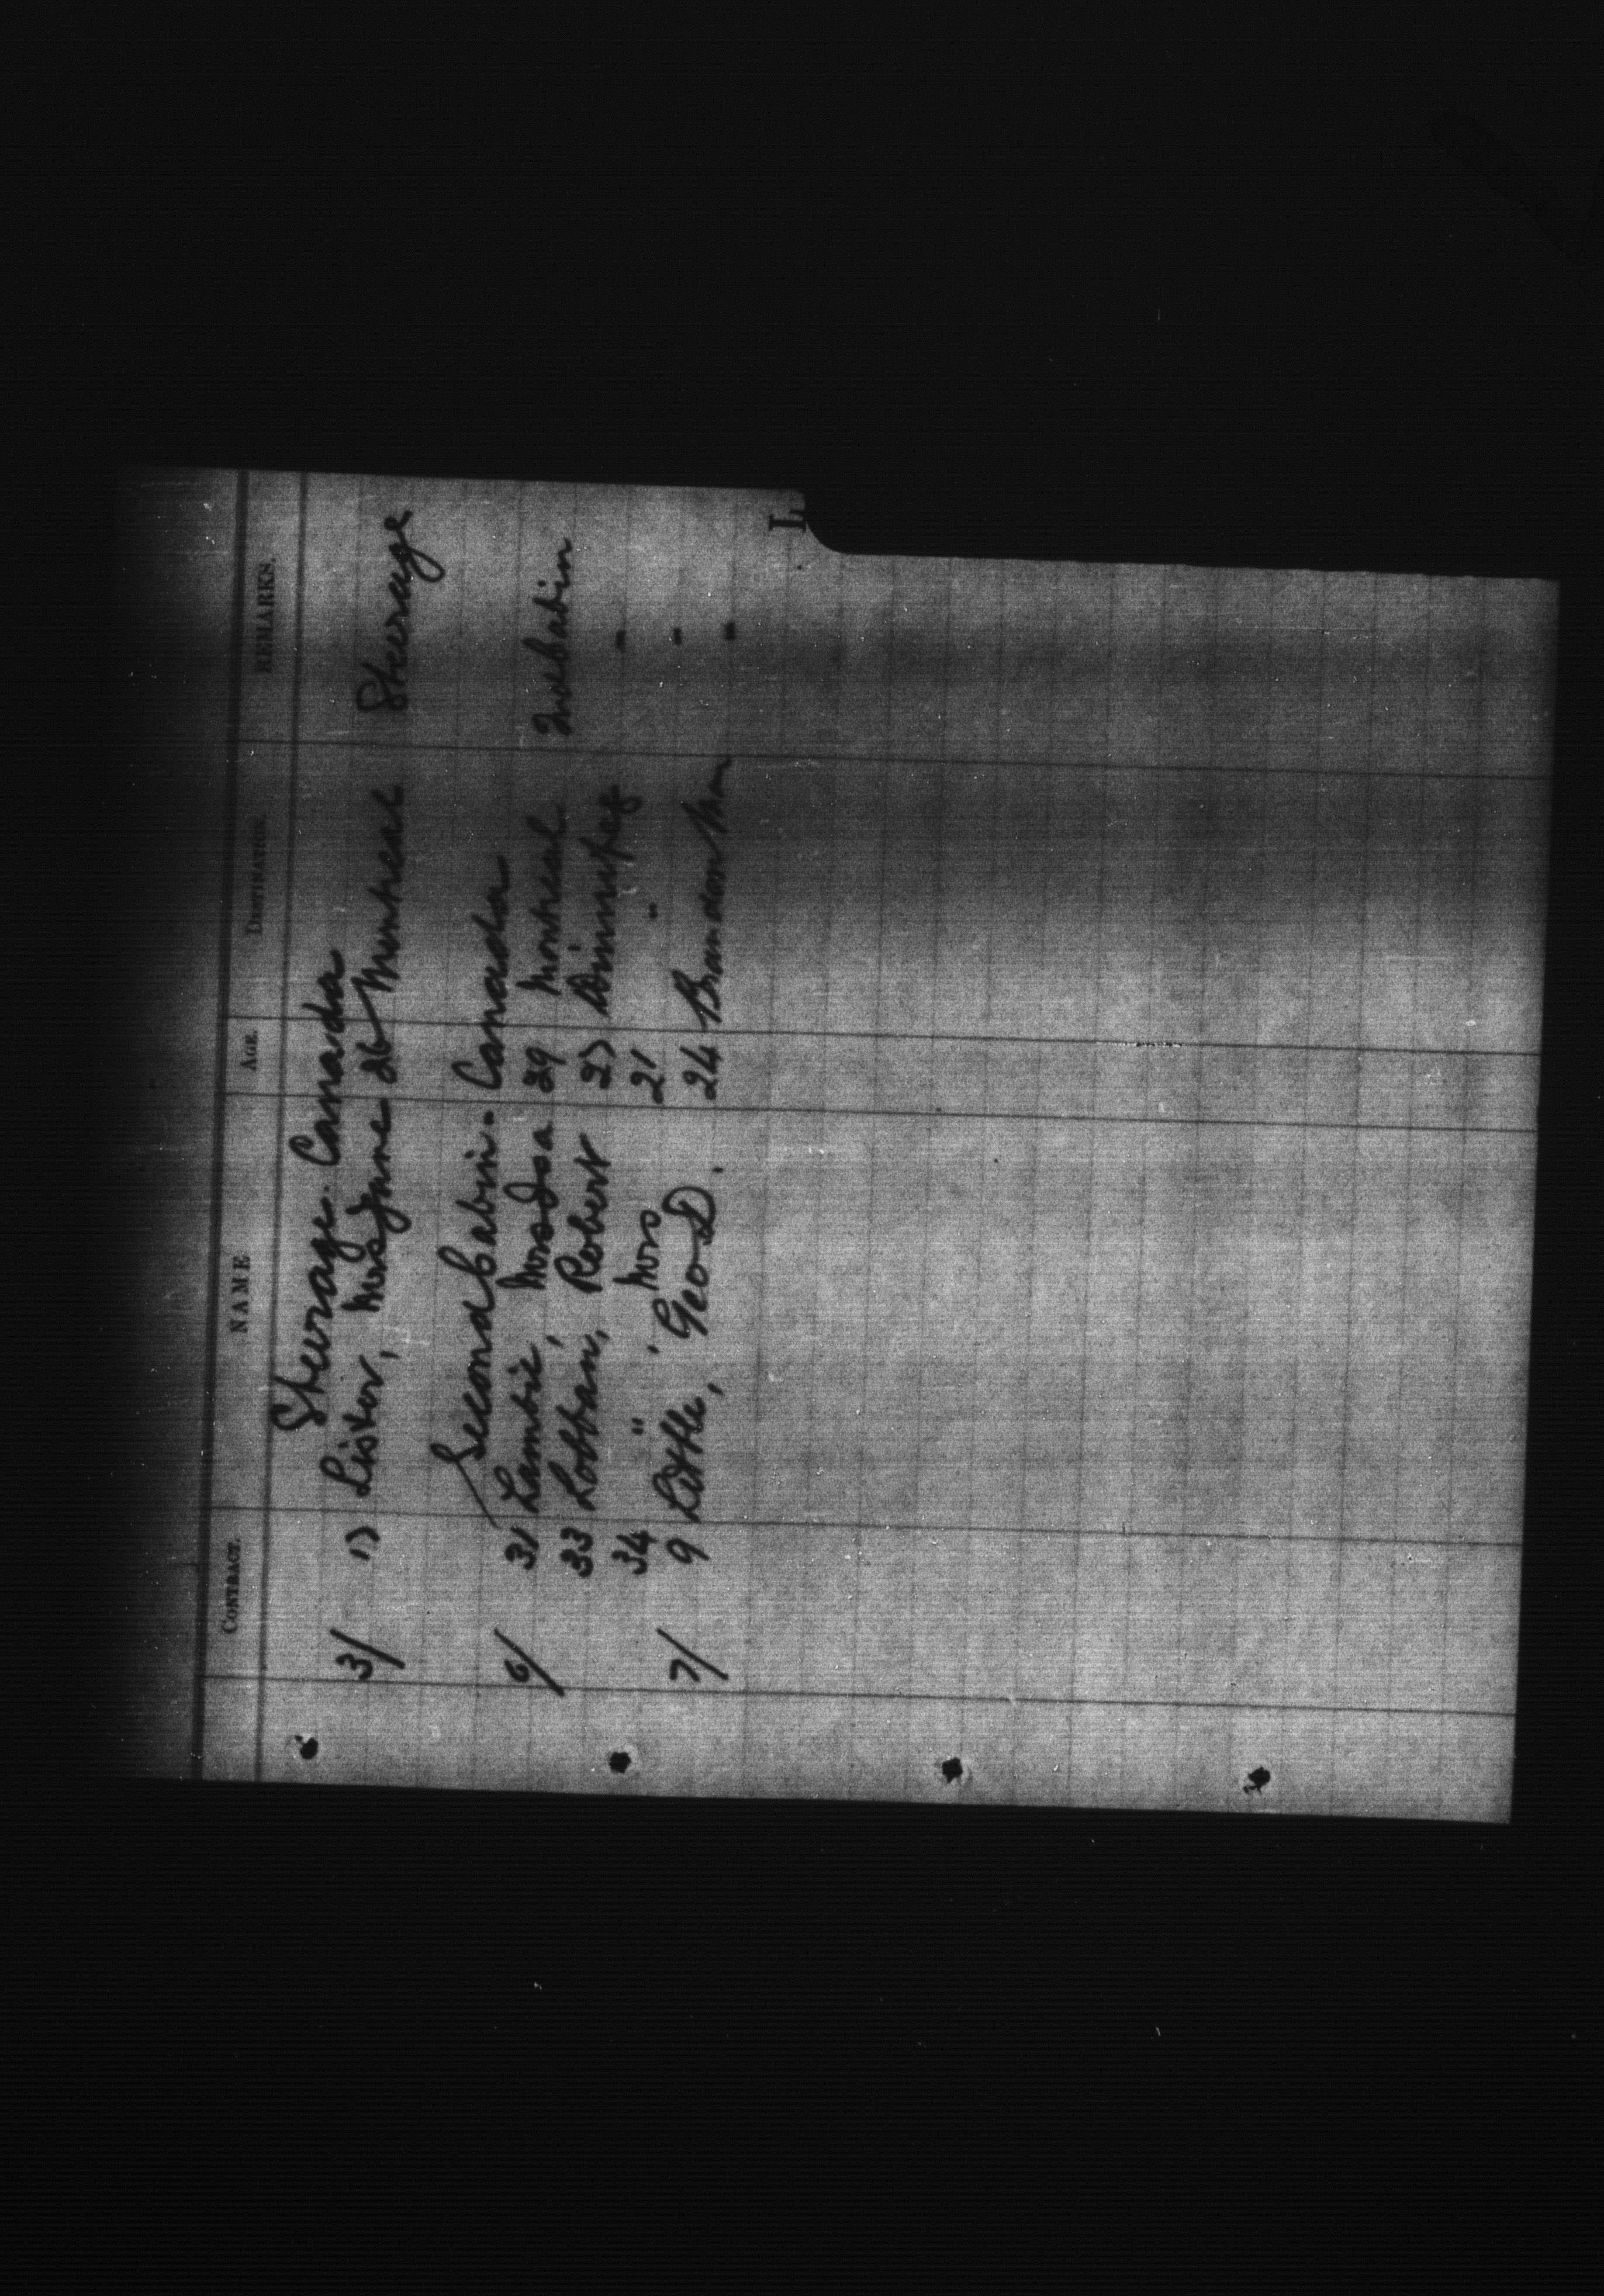 L
CONTRACT. NAME AGE. DESTINATION. REMARKS.
Steerage. Canada
3/ 17 Listor, Mrs Jane 26 Montreal Steerage
Second Cabin. Canada
6/ 31 Lambie, Mrs Isa 29 Montreal 2nd Cabin
33 Lobban, Robert 27 Winnipeg "
34 " . Mrs 21 " "
7/ 9 Little, Geo D. 24 Brandon Man "